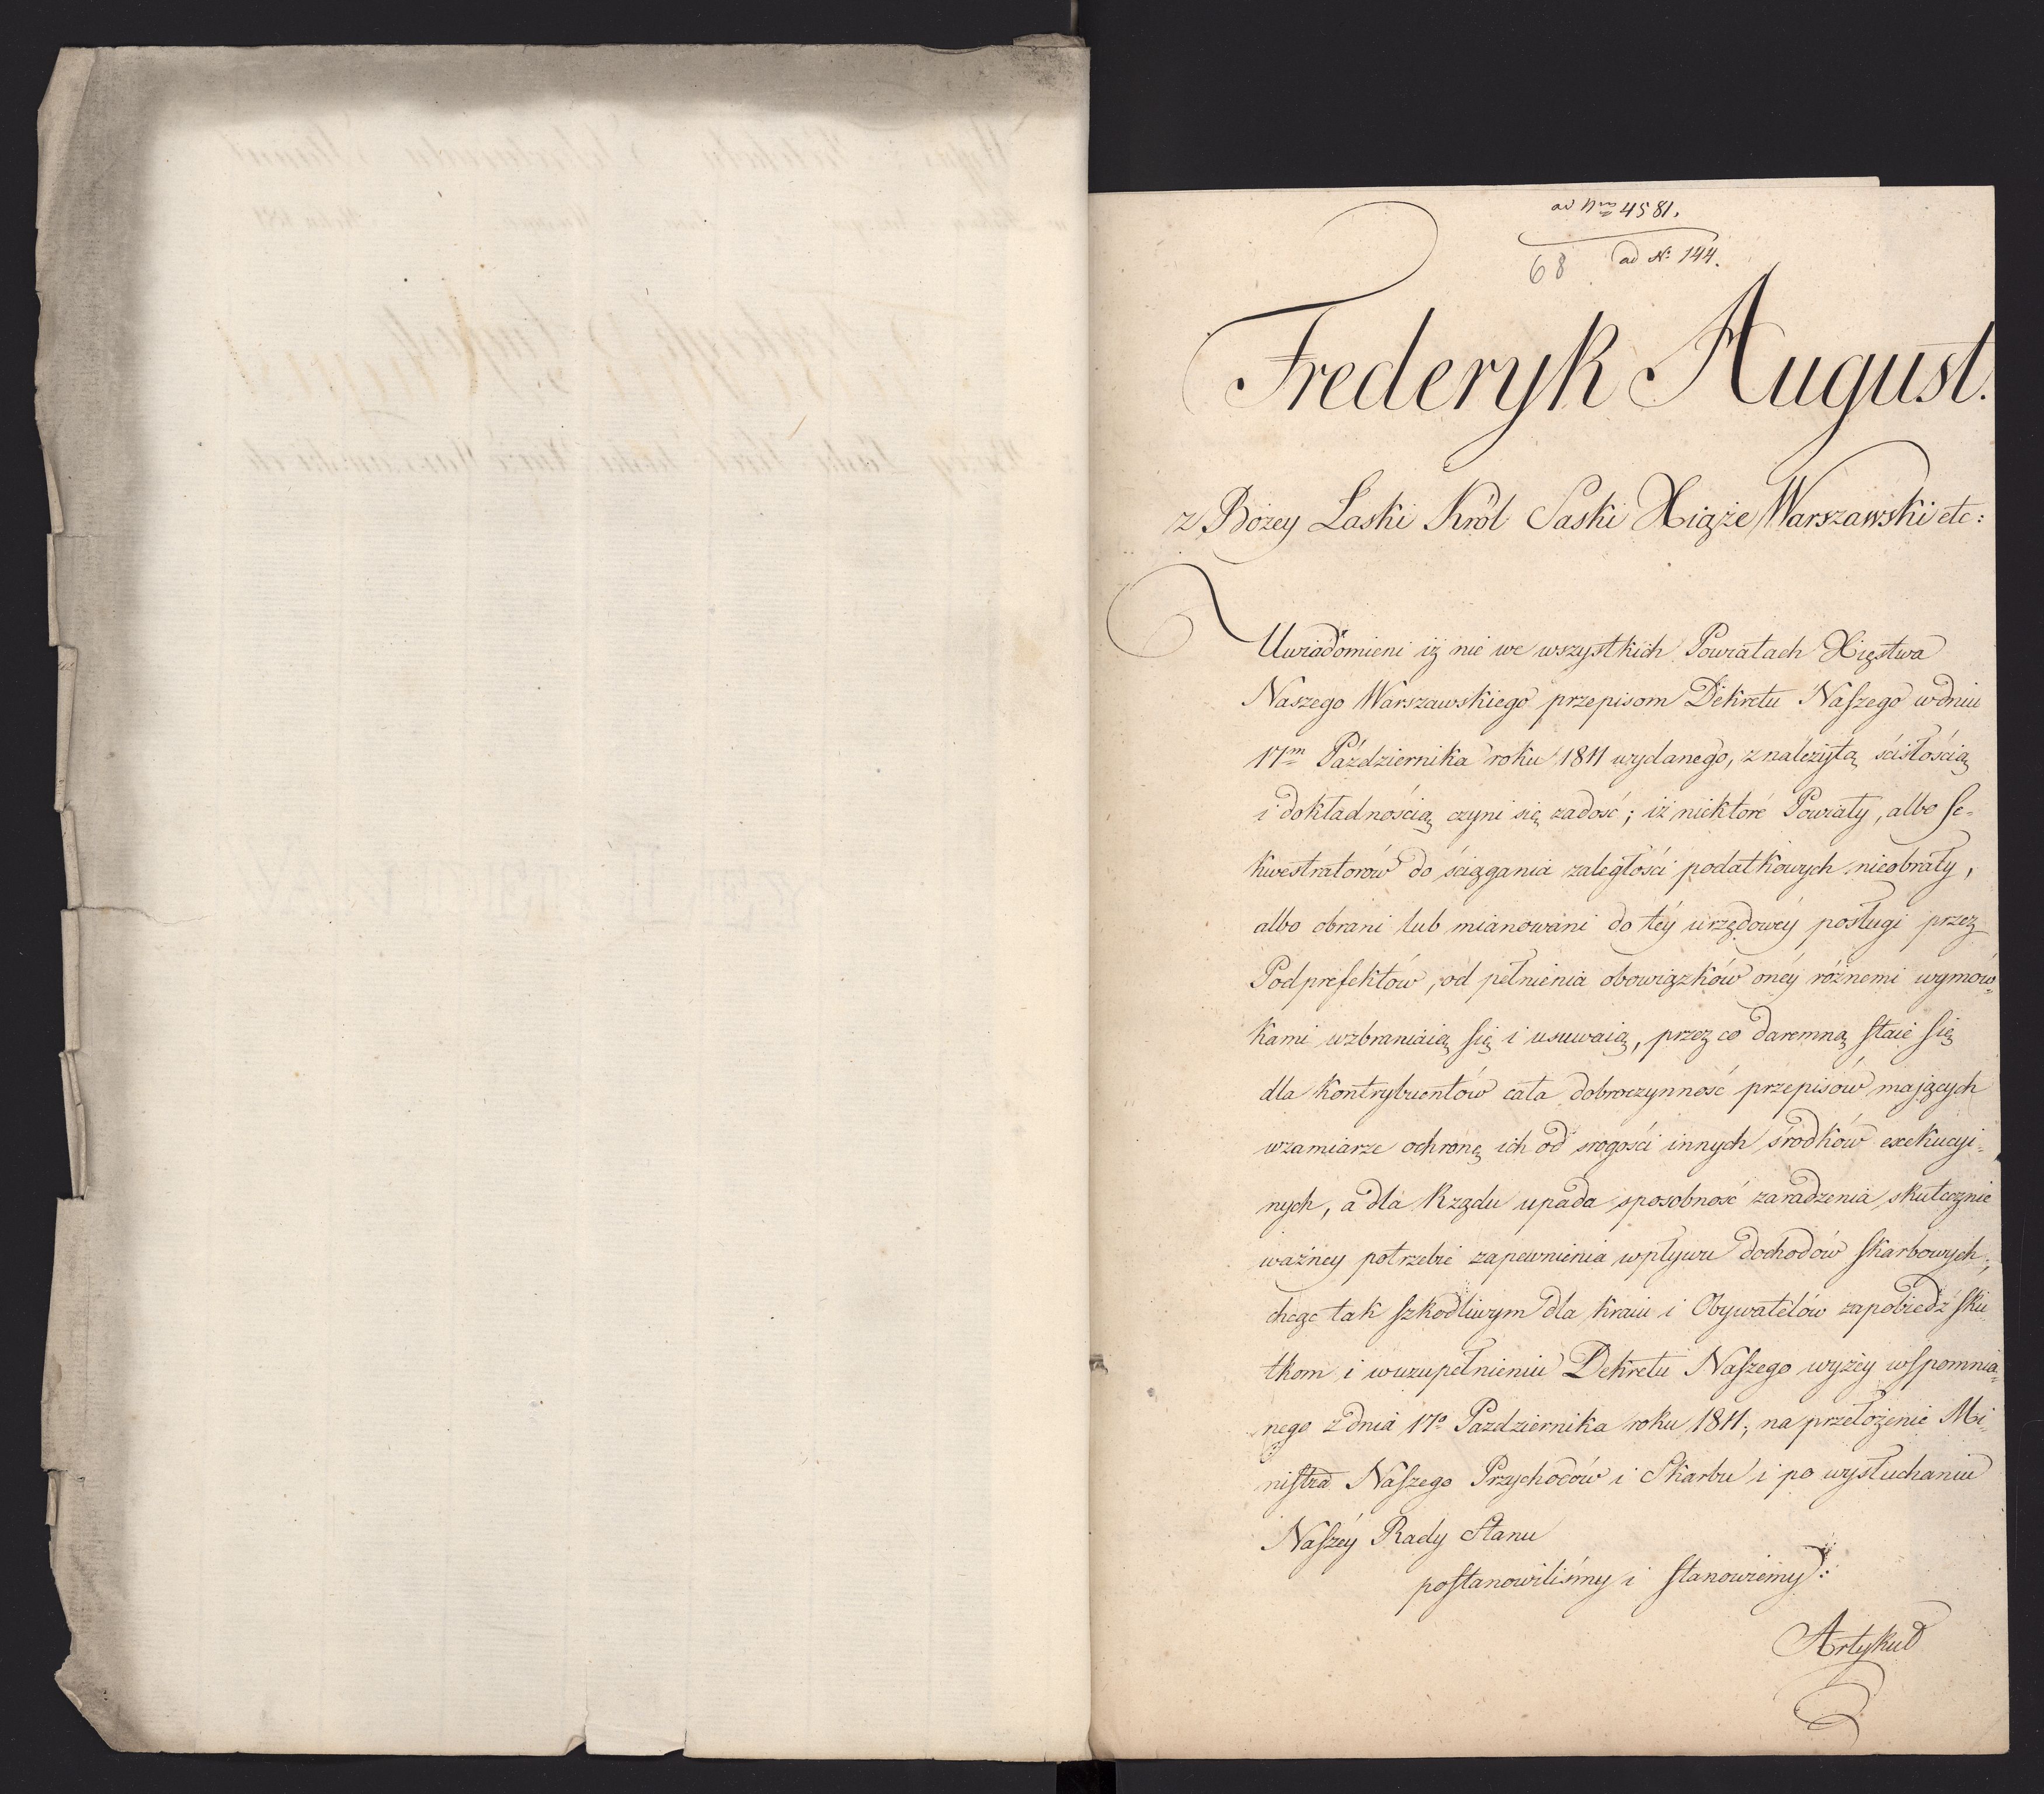 ad N. 144.
68
Frederyk August.
z Bożey Łaski Król Saski Xiąże Warszawski etc:
Uwiadomieni iż nie we wszystkich Powiatach Xięstwa
Naszego Warszawskiego przepisom Dekretu Naszego w dniu
17m Października roku 1811 wydanego, z należytą ścisłością
i dokładnością czyni się zadość; iż niektóre Powiaty, albo Se-
kwestratorów do ściągania zaległości podatkowych nieobrały,
albo obrani lub mianowani do téy urzędowéy posługi przez
Podprefektów, od pełnienia obowiązków onéy różnemi wymów-
kami wzbraniaią się i usuwaią, przez co daremną staie się
dla Kontrybuentów cała dobroczynność przepisów mających
w zamiarze ochronę ich od srogości innych środków exekucyi-
nych, a dla Rządu upada sposobność zaradzenia skutecznie
ważney potrzebie zapewnienia wpływu dochodów skarbowych;
chcąc tak szkodliwym dla kraiu i Obywatelów zapobiedz sku-
tkom i w uzupełnieniu Dekretu Naszego wyżéy wspomnia-
nego z dnia 17o Października roku 1811, na przełożenie Mi-
nistra Naszego Przychodów i Skarbu i po wysłuchaniu
Naszéy Rady Stanu
postanowiliśmy i stanowiemy:
Artykuł